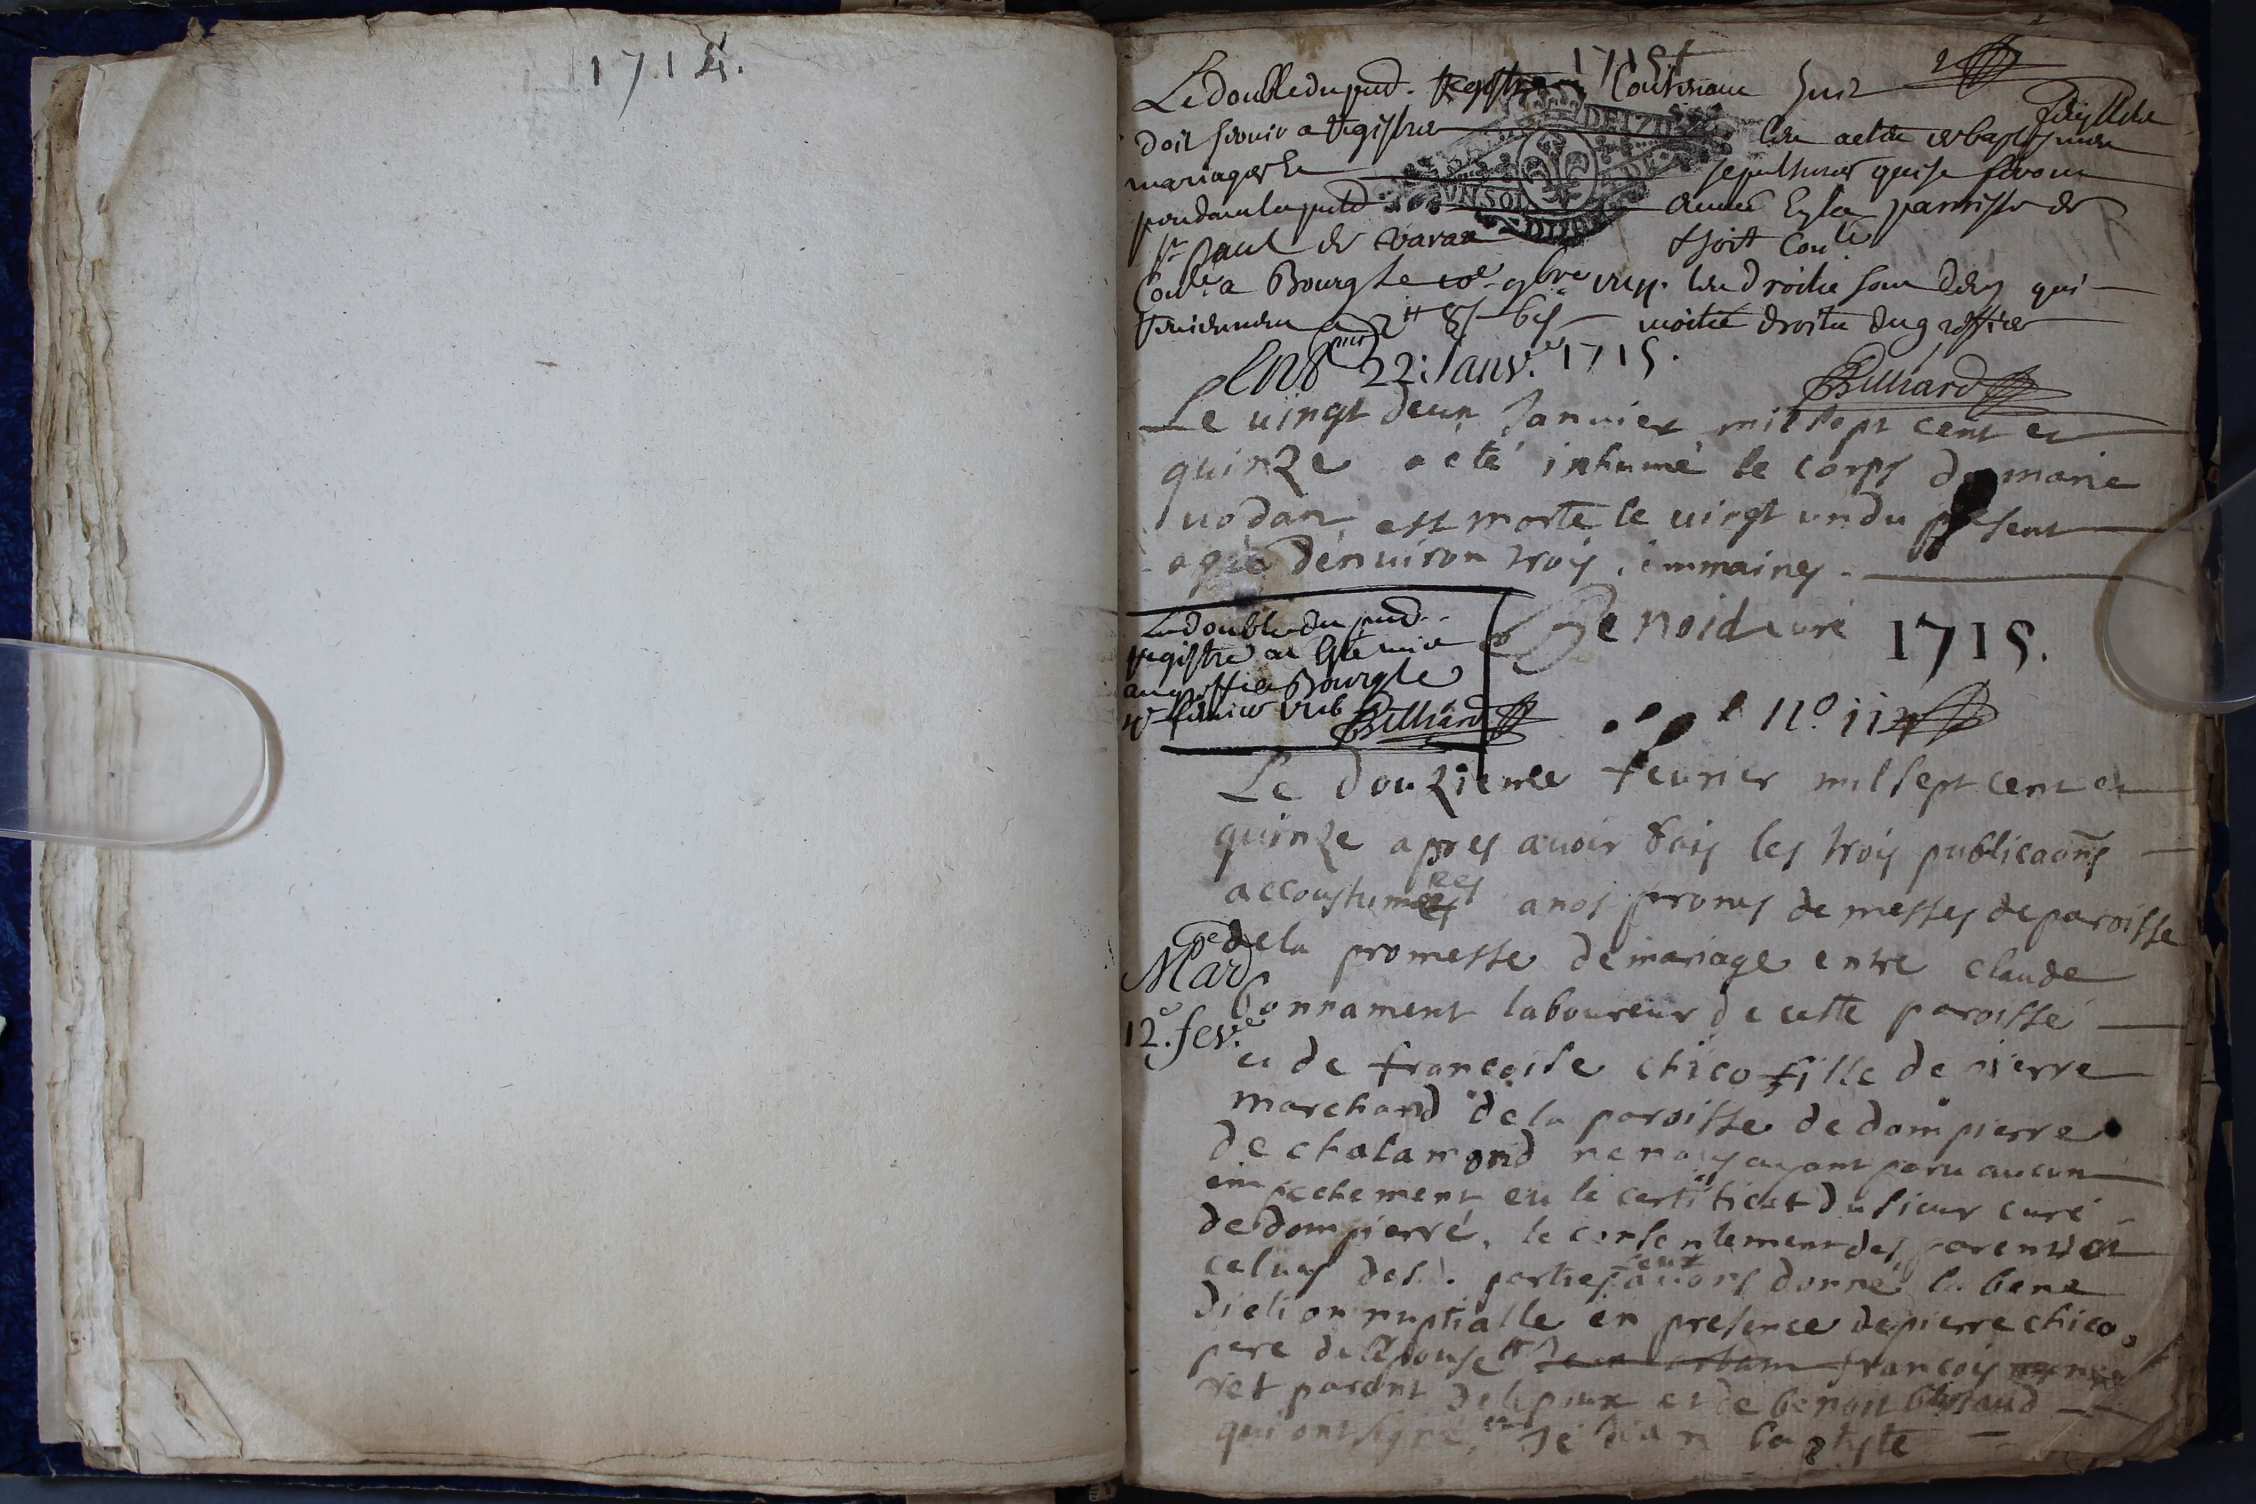 1714.
1715
Le double du pnt. Registre Contenant huit
doit servir a Registrer les actes de baptesmes
mariages & sepultures qui se feront
pendant la pnte année En la parroisse de
St Paul de Varax
Bourg le les droits sont deus qui
moitié droits du greffier
22: Janv. 1715.
Billiard
Le vingt deux Janvier mil sept cent et
quinze a eté inhumé le corps de marie
uodan est morte le vingt un du present
agée d'enuiron trois semmaines.
curé 1715.
Le double du pnt.
registre a esté mis
au greffe a Bourg le
Billiard
Le douzieme feurier mil sept cent et
quinze apres auoir fais les trois publicaons
accoustumees a nos prones de messes de paroisse
de la promesse de mariage entre claude
Mar.ge
bonnament laboureur de cette paroisse
12.e fev.e
et de francoise chico fille de pierre
marchand de la paroisse de dompierre
de chalamond ne nous ayant paru aucun
empechement eu le certificat du sieur curé
de dompierre, le consentement des parents et
celuy desd. parties leur auons donné la bene
diction nuptialle en presence de pierre chico
pere de l'epouse francois
parent de lepoux et de benoit
qui ont signé,